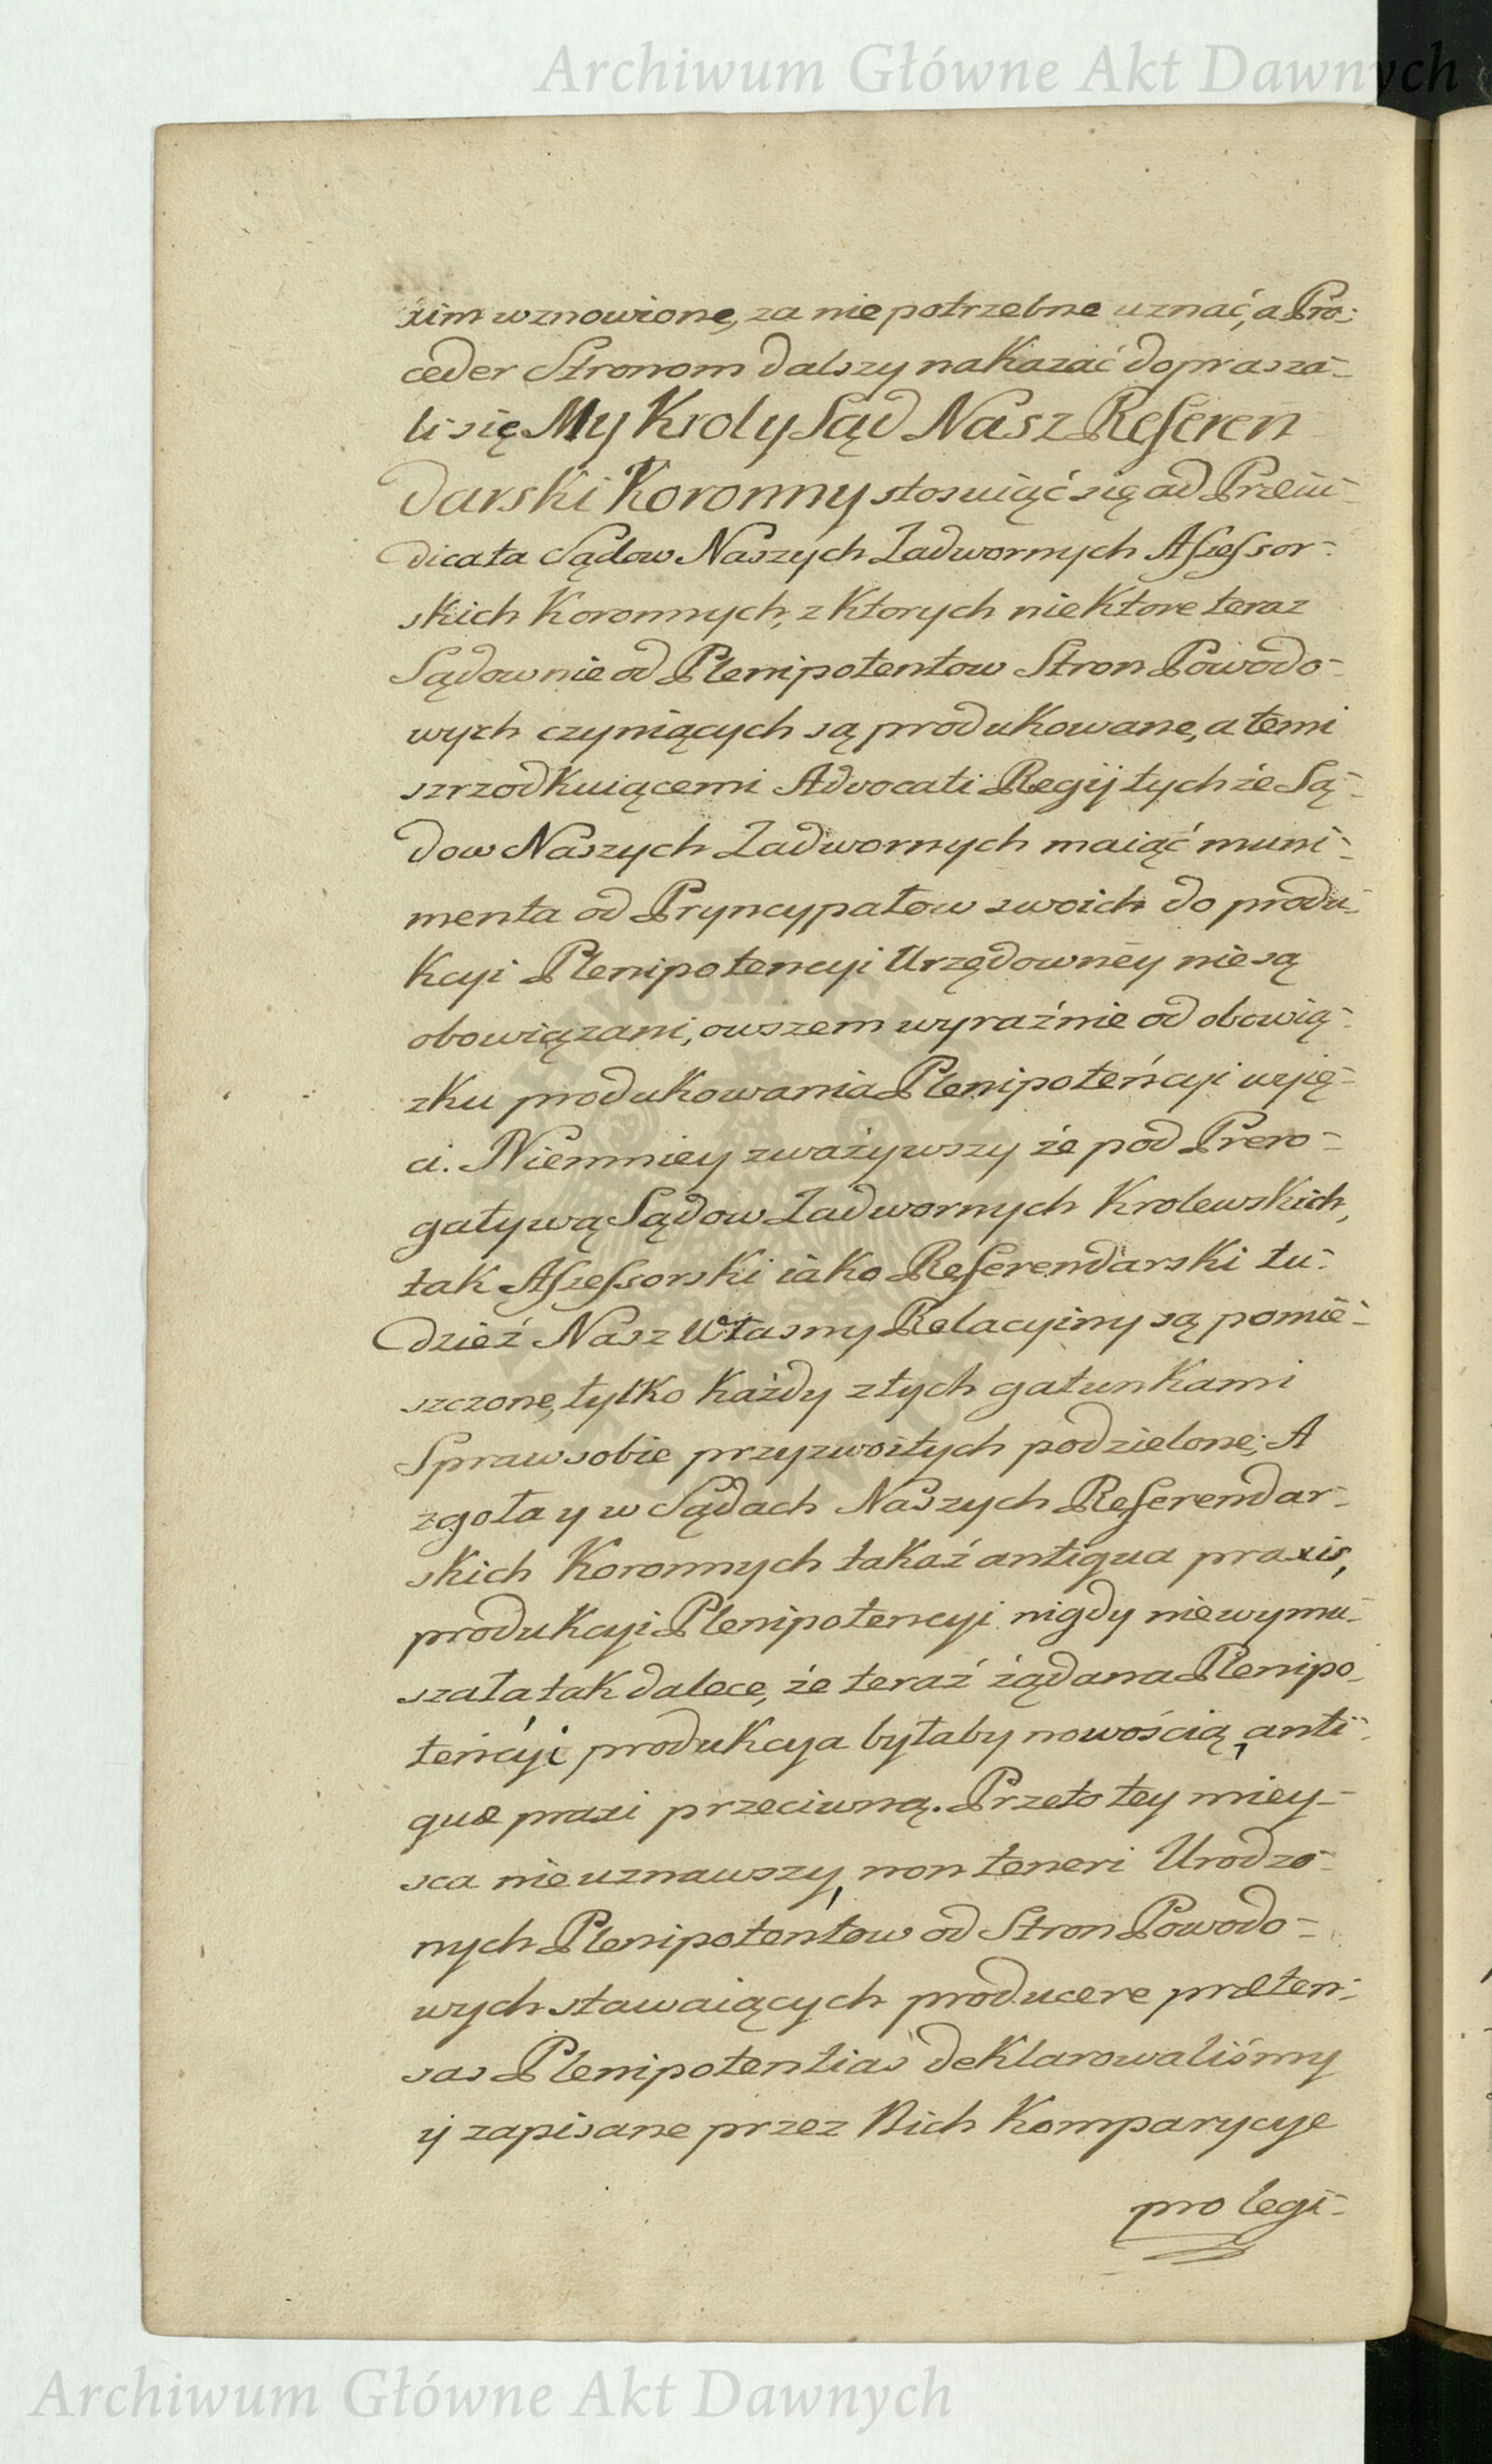 Archiwum Główne Akt Dawnych
xim wznowione, za nie potrzebne uznać, a Pro-
ceder Stronom dalszy nakazać doprasza-
li się My Krol y Sąd Nasz Referen
darski Koronny stosuiąć się ad Præiu-
dicata Sądow Naszych Zadwornych Assessor-
skich Koronnych, z ktorych niektore teraz
Sądownie od Plenipotentow Stron Powodo-
wych czyniących są produkowane, a temi
szrzodkuiącemi Advocati Regij tychże Są-
dow Naszych Zadwornych maiąć muni-
menta od Pryncypałow swoich do produ-
kcyi Plenipotencyi Urzędowney nie są
obowiązani, owszem wyraźnie od obowią-
zku produkowania Plenipoteńcyi wyię-
ci. Niemniey zważywszy że pod Prero-
gatywą Sądow Zadwornych Krolewskich,
tak Assessorski iako Referendarski tu-
dzież Nasz Własny Relacyiny są pomie-
szczone, tylko każdy z tych gatunkami
Spraw sobie przyzwoitych podzielone; A
zgoła y w Sądach Naszych Referendar-
skich Koronnych takaż antiqua praxis,
produkcyi Plenipotencyi nigdy niewymu-
szała tak dalece, że teraź żądana Plenipo-
teńcyi produkcya byłaby nowością, anti-
quæ praxi przeciwną. Przeto tey miey-
sca nie uznawszy, non teneri Urodzo-
nych Plenipotentow od Stron Powodo-
wych stawaiących producere præten-
sas Plenipotentias deklarowaliśmy
ij zapisane przez Nich Komparycye
pro legi-
Archiwum Główne Akt Dawnych